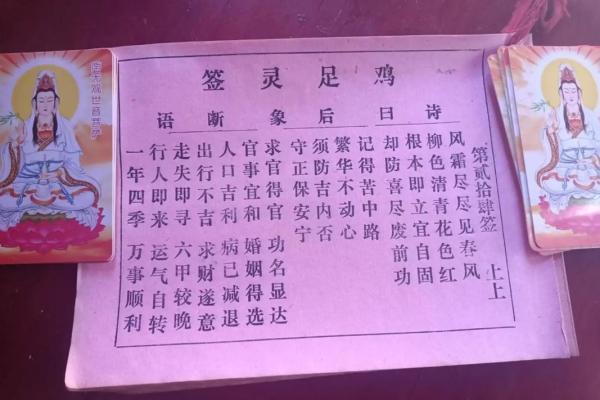 鸡足灵签
诗曰
后象
断语
第贰拾肆签 上上
风霜尽尽见春风
柳色清青花色红
根本即立宜自固
却防喜尽废前功
记得苦中路
繁华不动心
须防吉内否
守正保安宁
求官得官 功名显达
官事宜和 婚姻得选
人口吉利 病已减退
出行不吉 求财遂意
走失即寻 六甲较晚
行人即来 运气自转
一年四季 万事顺利
南无观世音菩萨